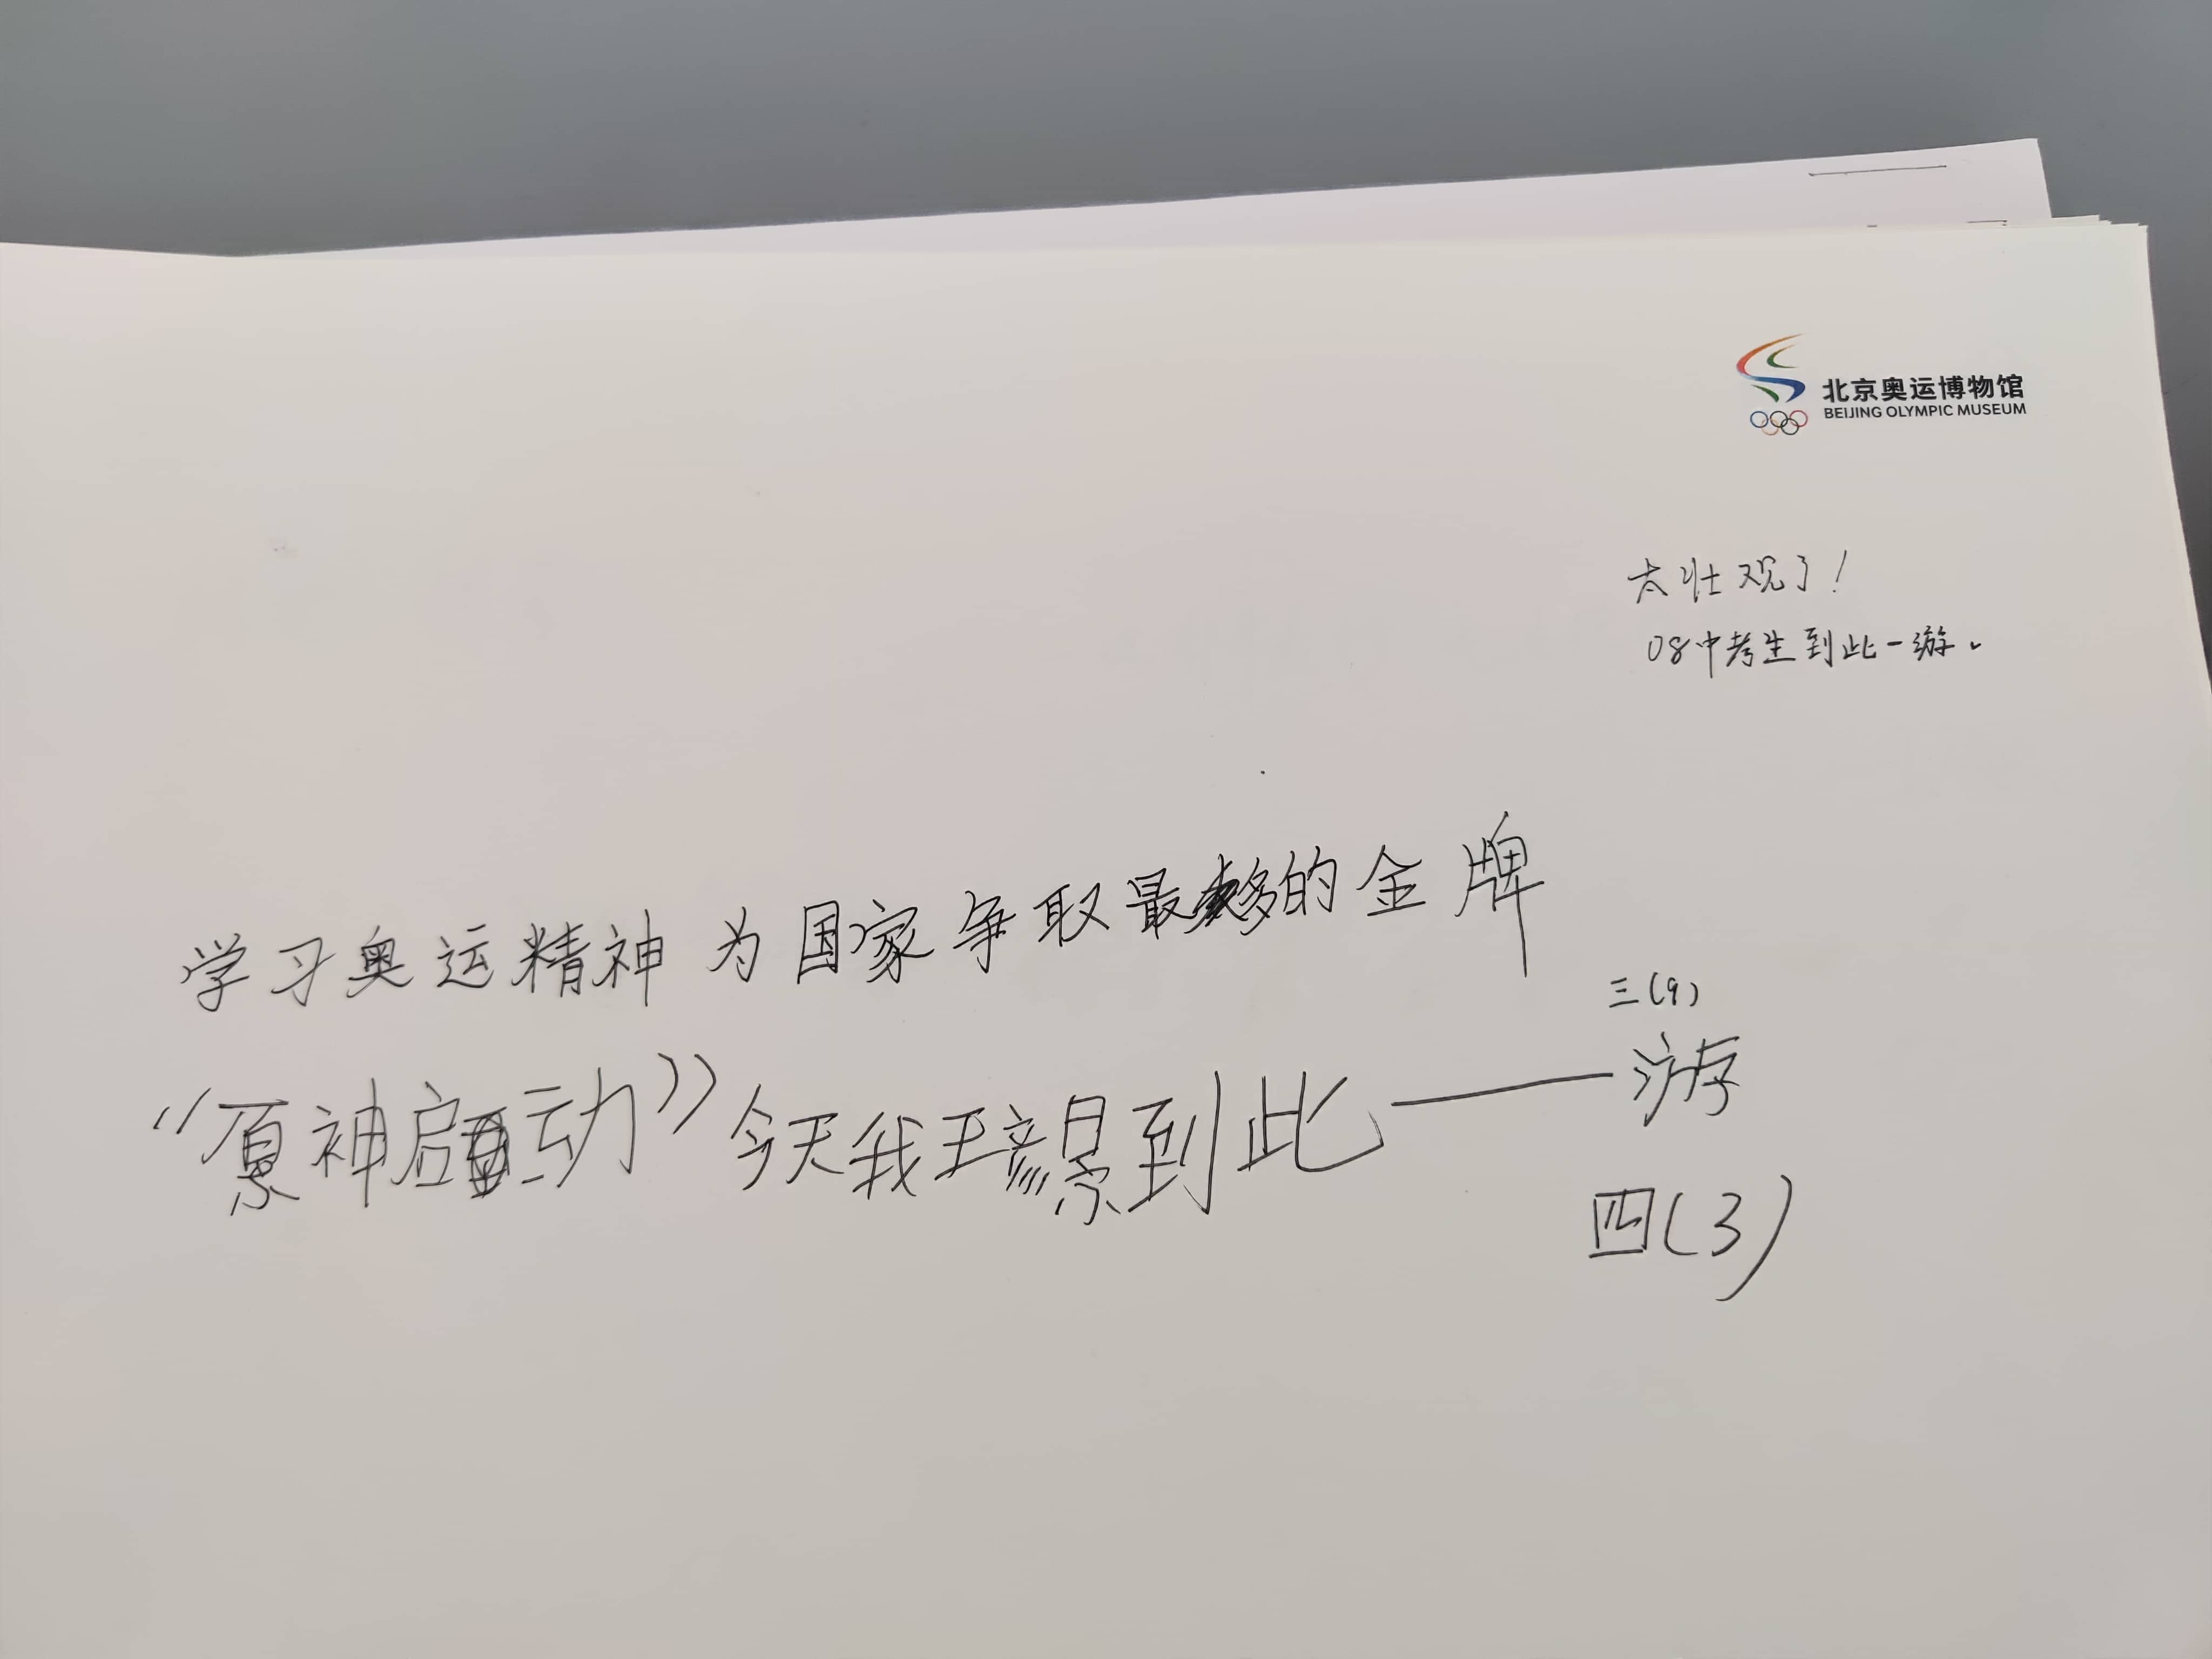 北京奥运博物馆
BEIJING OLYMPIC MUSEUM
太壮观了！
08中考生到此一游。
学习奥运精神为国家争取最多的金牌
三(9)
“原神启动”今天我王彦景到此一游
四(3)